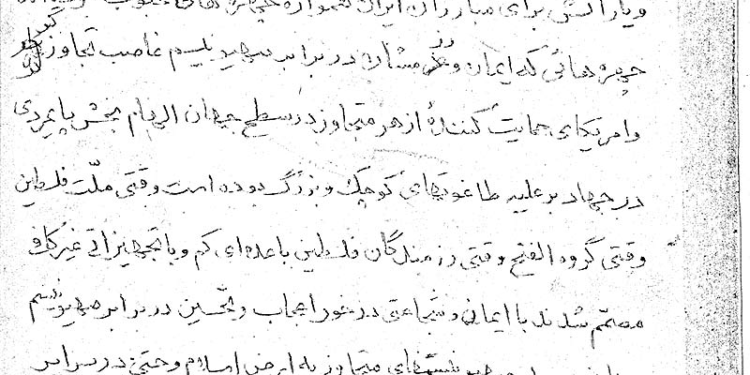 و یا راکشی برای مبارزان ایران همواره چهره‌های
چهره‌هائی که ایمان و رزمشان در برابر صهیونیسم غاصب تجاوز
و امریکای حمایت کنندهٔ از هر متجاوز در سطح جهان الهام بخش پایمردی
در جهاد بر علیه طاغوتهای کوچک و بزرگ بوده است وقتی ملّت فلسطین
وقتی گروه الفتح وقتی رزمندگان فلسطین با عده‌ای کم و با تجهیزاتی غیر کافی
مصمّم شدند با ایمان و شجاعتی در خور اعجاب و تحسین در برابر صهیونیسم
متجاوز به ارض اسلام و حتی در برابر